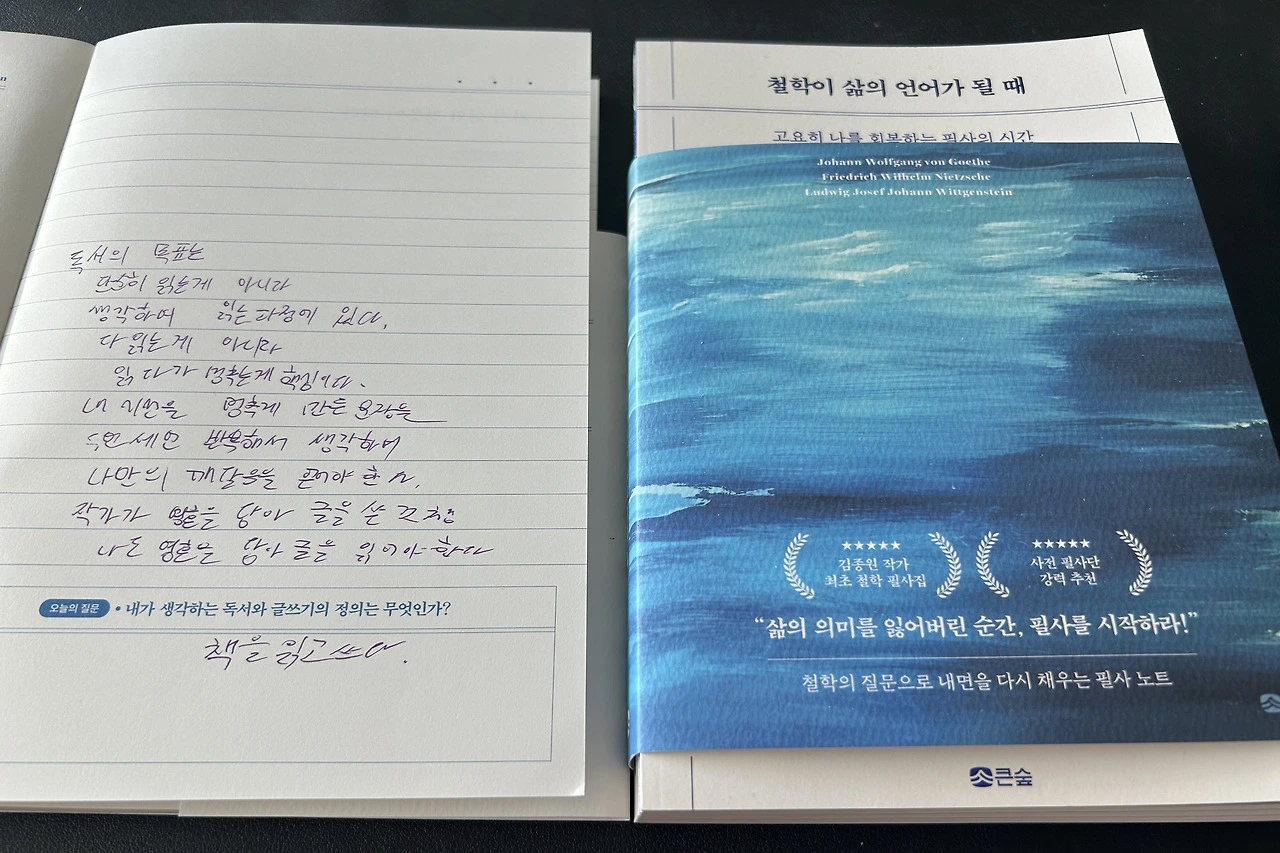 독서의 목표는
단순히 읽는게 아니라
생각하며 읽는 과정에 있다.
다 읽는게 아니라
읽다가 멈추는게 핵심이다.
내 시선을 멈추게 만든 문장을
두번 세번 반복해서 생각하며
나만의 깨달음을 얻어야 한다.
작가가 영혼을 담아 글을 쓴 것처럼
나도 영혼을 담아 글을 읽어야 한다
오늘의 질문 • 내가 생각하는 독서와 글쓰기의 정의는 무엇인가?
책을 읽고 쓰다.
철학이 삶의 언어가 될 때
고요히 나를 회복하는 필사의 시간
Johann Wolfgang von Goethe
Friedrich Wilhelm Nietzsche
Ludwig Josef Johann Wittgenstein
★★★★★ ★★★★★
김종원 작가 사전 필사단
최초 철학 필사집 강력 추천
“삶의 의미를 잃어버린 순간, 필사를 시작하라!”
철학의 질문으로 내면을 다시 채우는 필사 노트
큰숲